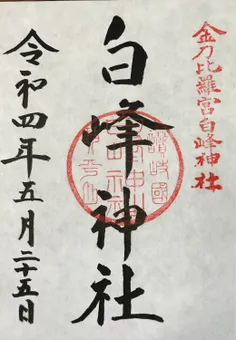 金刀比羅宮白峰神社
白峰神社
令和四年五月二十五日